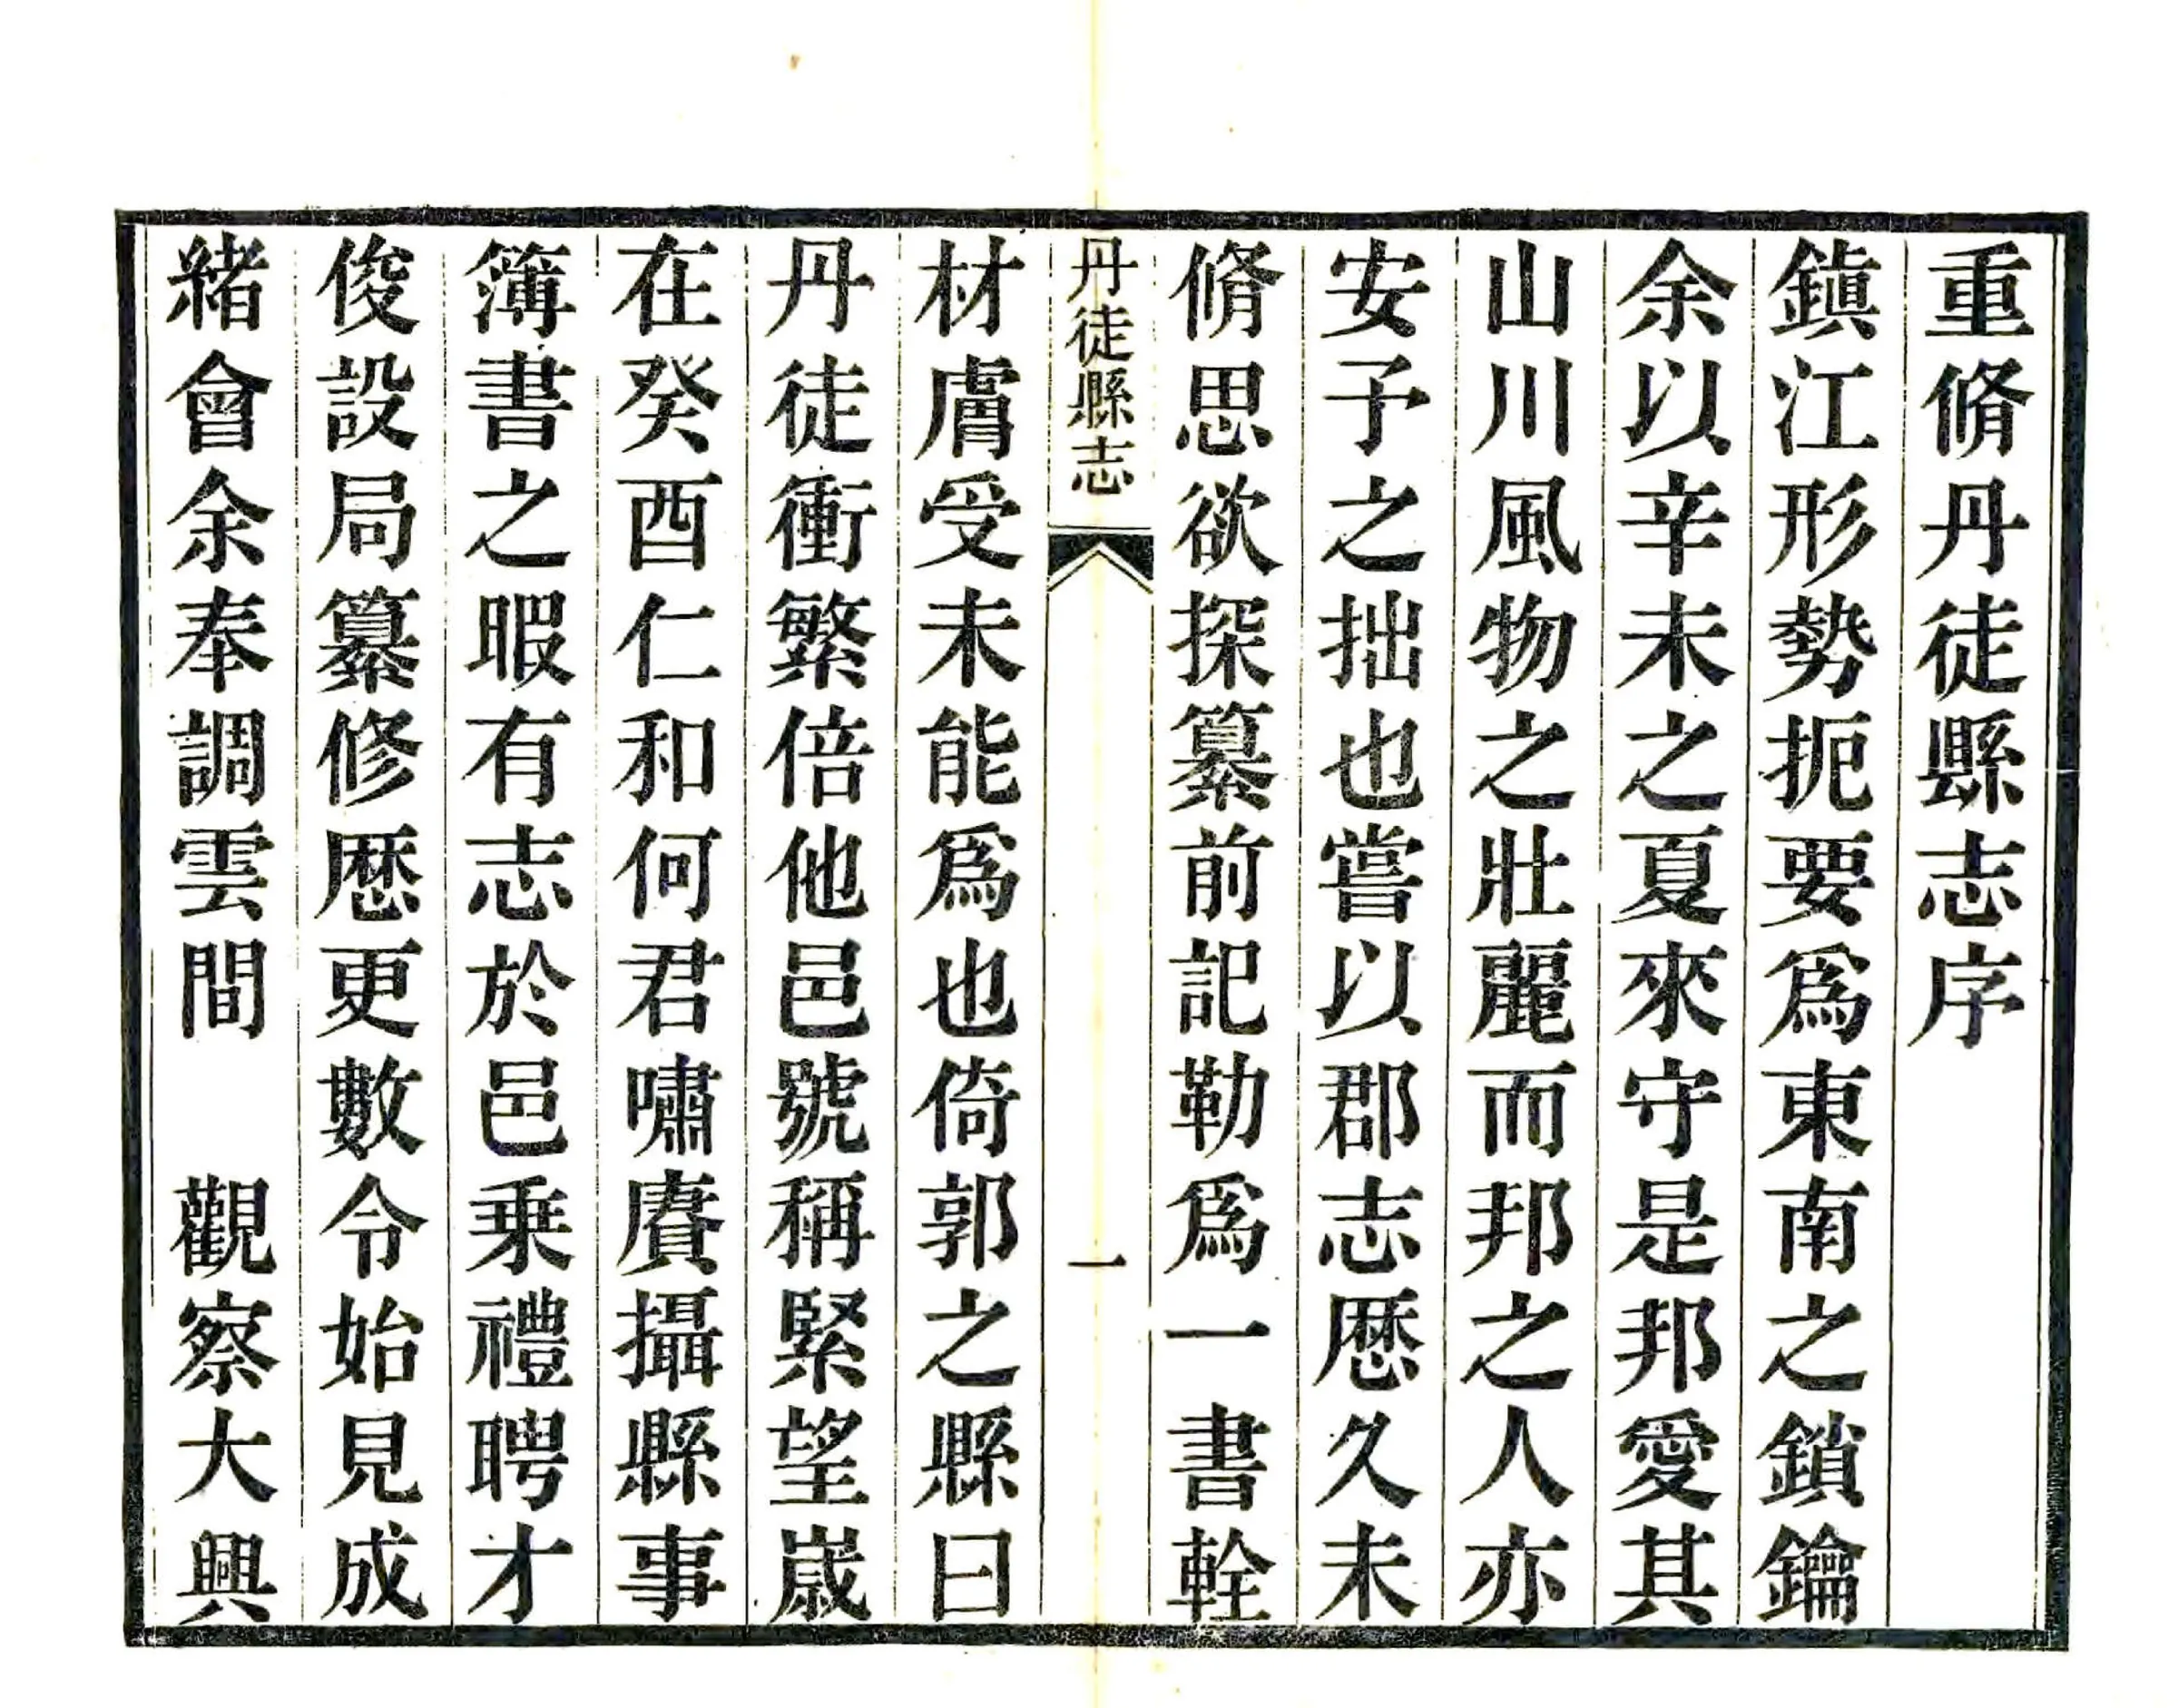 重脩丹徒縣志序
鎭江形勢扼要爲東南之鎖鑰
余以辛未之夏來守是邦愛其
山川風物之壯麗而邦之人亦
安予之拙也嘗以郡志歴久未
脩思欲探纂前記勒爲一書輇
丹徒縣志
一
材膚受未能爲也倚郭之縣曰
丹徒衝繁倍他邑號稱緊望嵗
在癸酉仁和何君嘯賡攝縣事
簿書之暇有志於邑乗禮聘才
俊設局纂修歴更數令始見成
緒會余奉調雲間　觀察大興